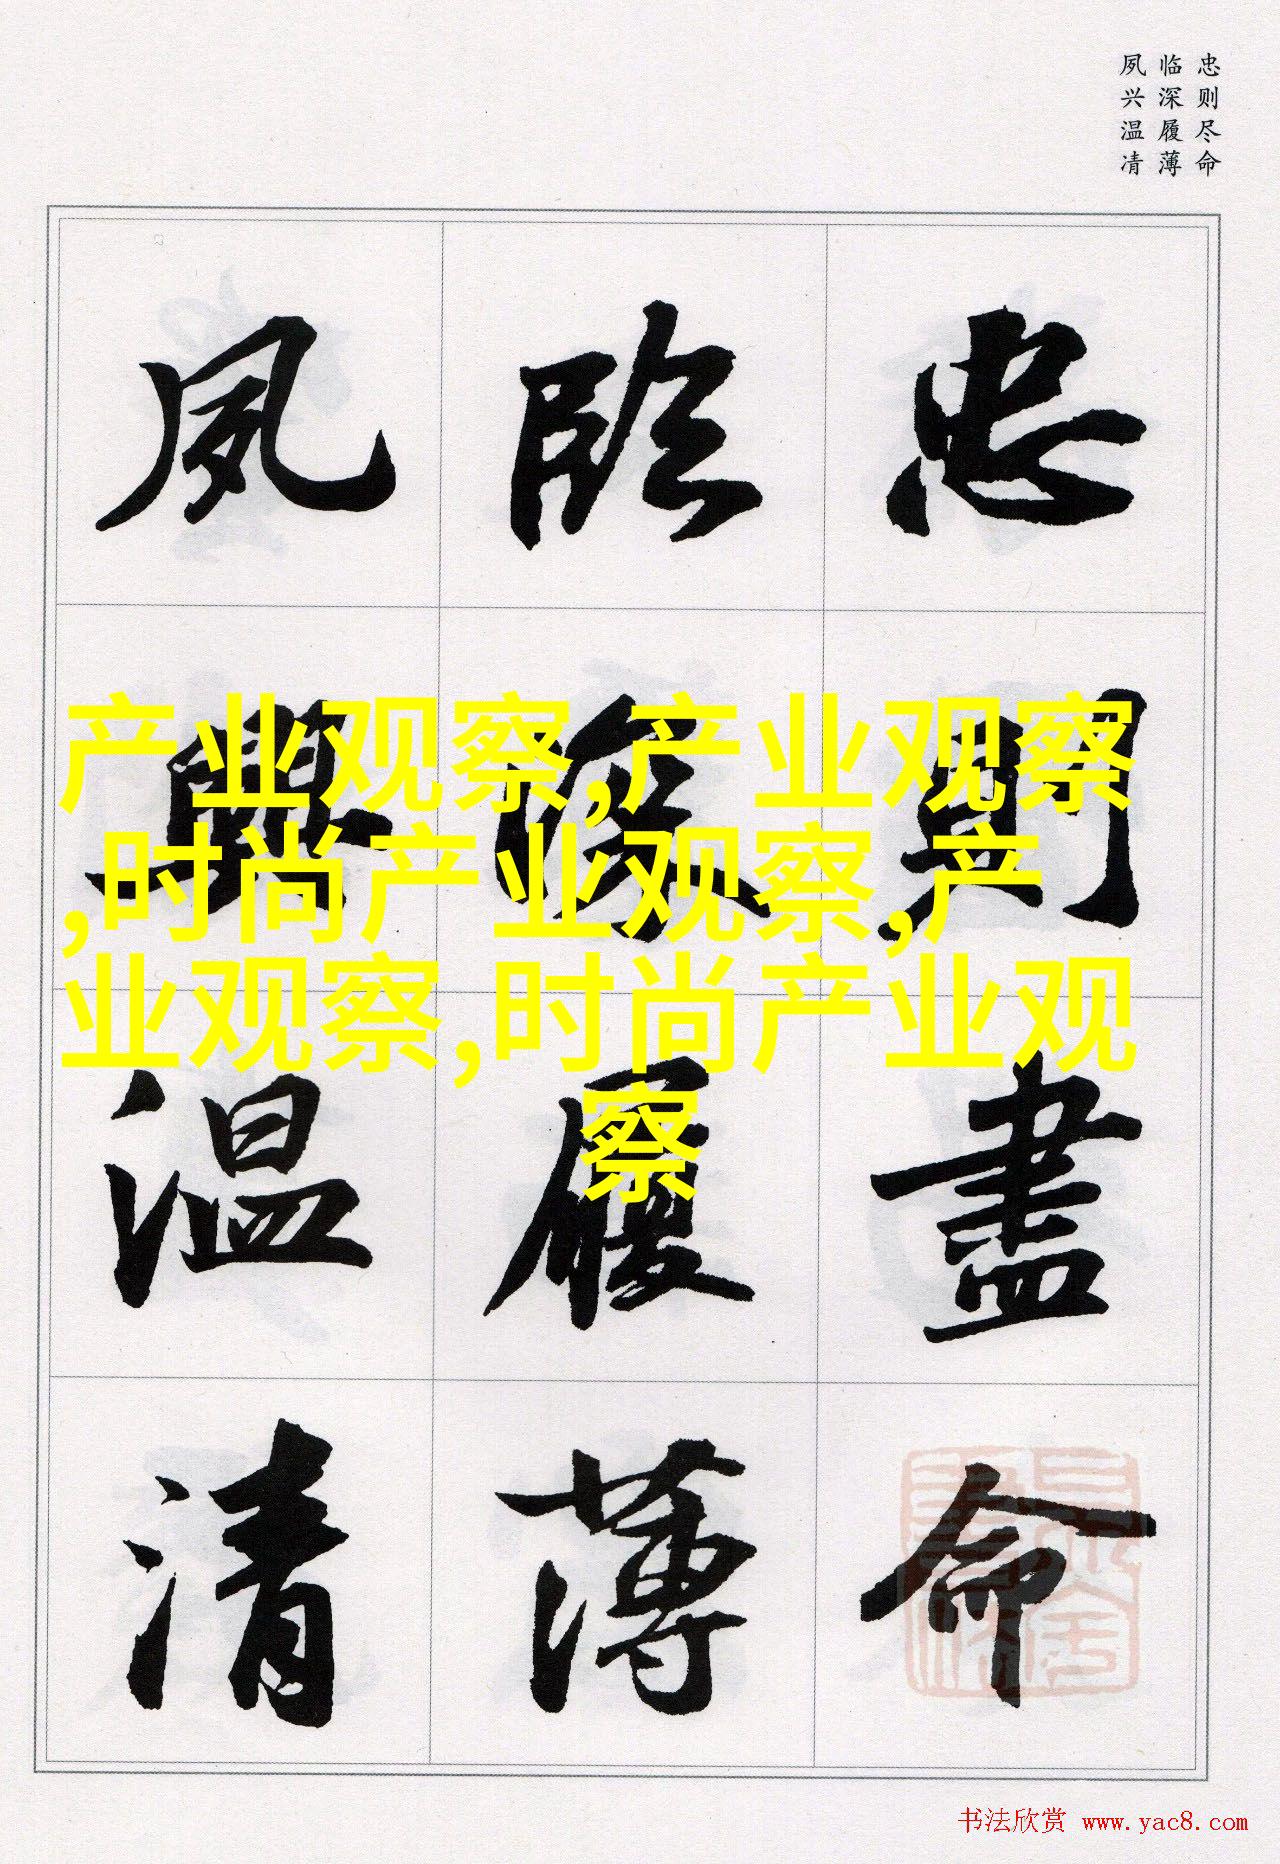 忠则尽命
临深履薄
夙兴温凊
忠則盡命
臨深履薄
夙興温清
产业观察,产业观察
,时尚产业观察,产
业观察,时尚产业观
察
书法欣赏 www.yac8.com